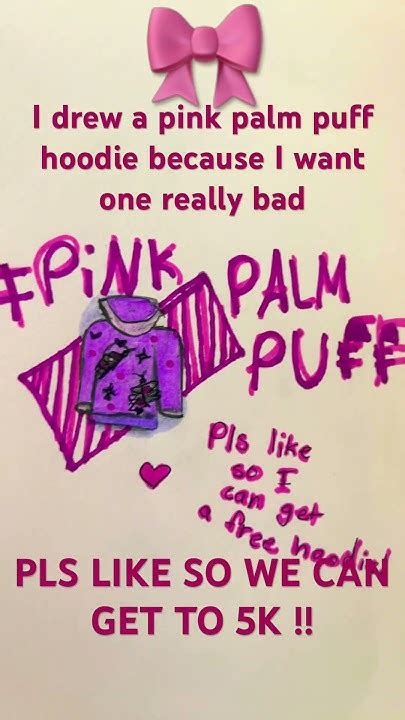 I drew a pink palm puff
hoodie because I want
one really bad
#PiNK PALM
PUFF
Pls like
so I
can get
a free hoodie!
PLS LIKE SO WE CAN
GET TO 5K !!